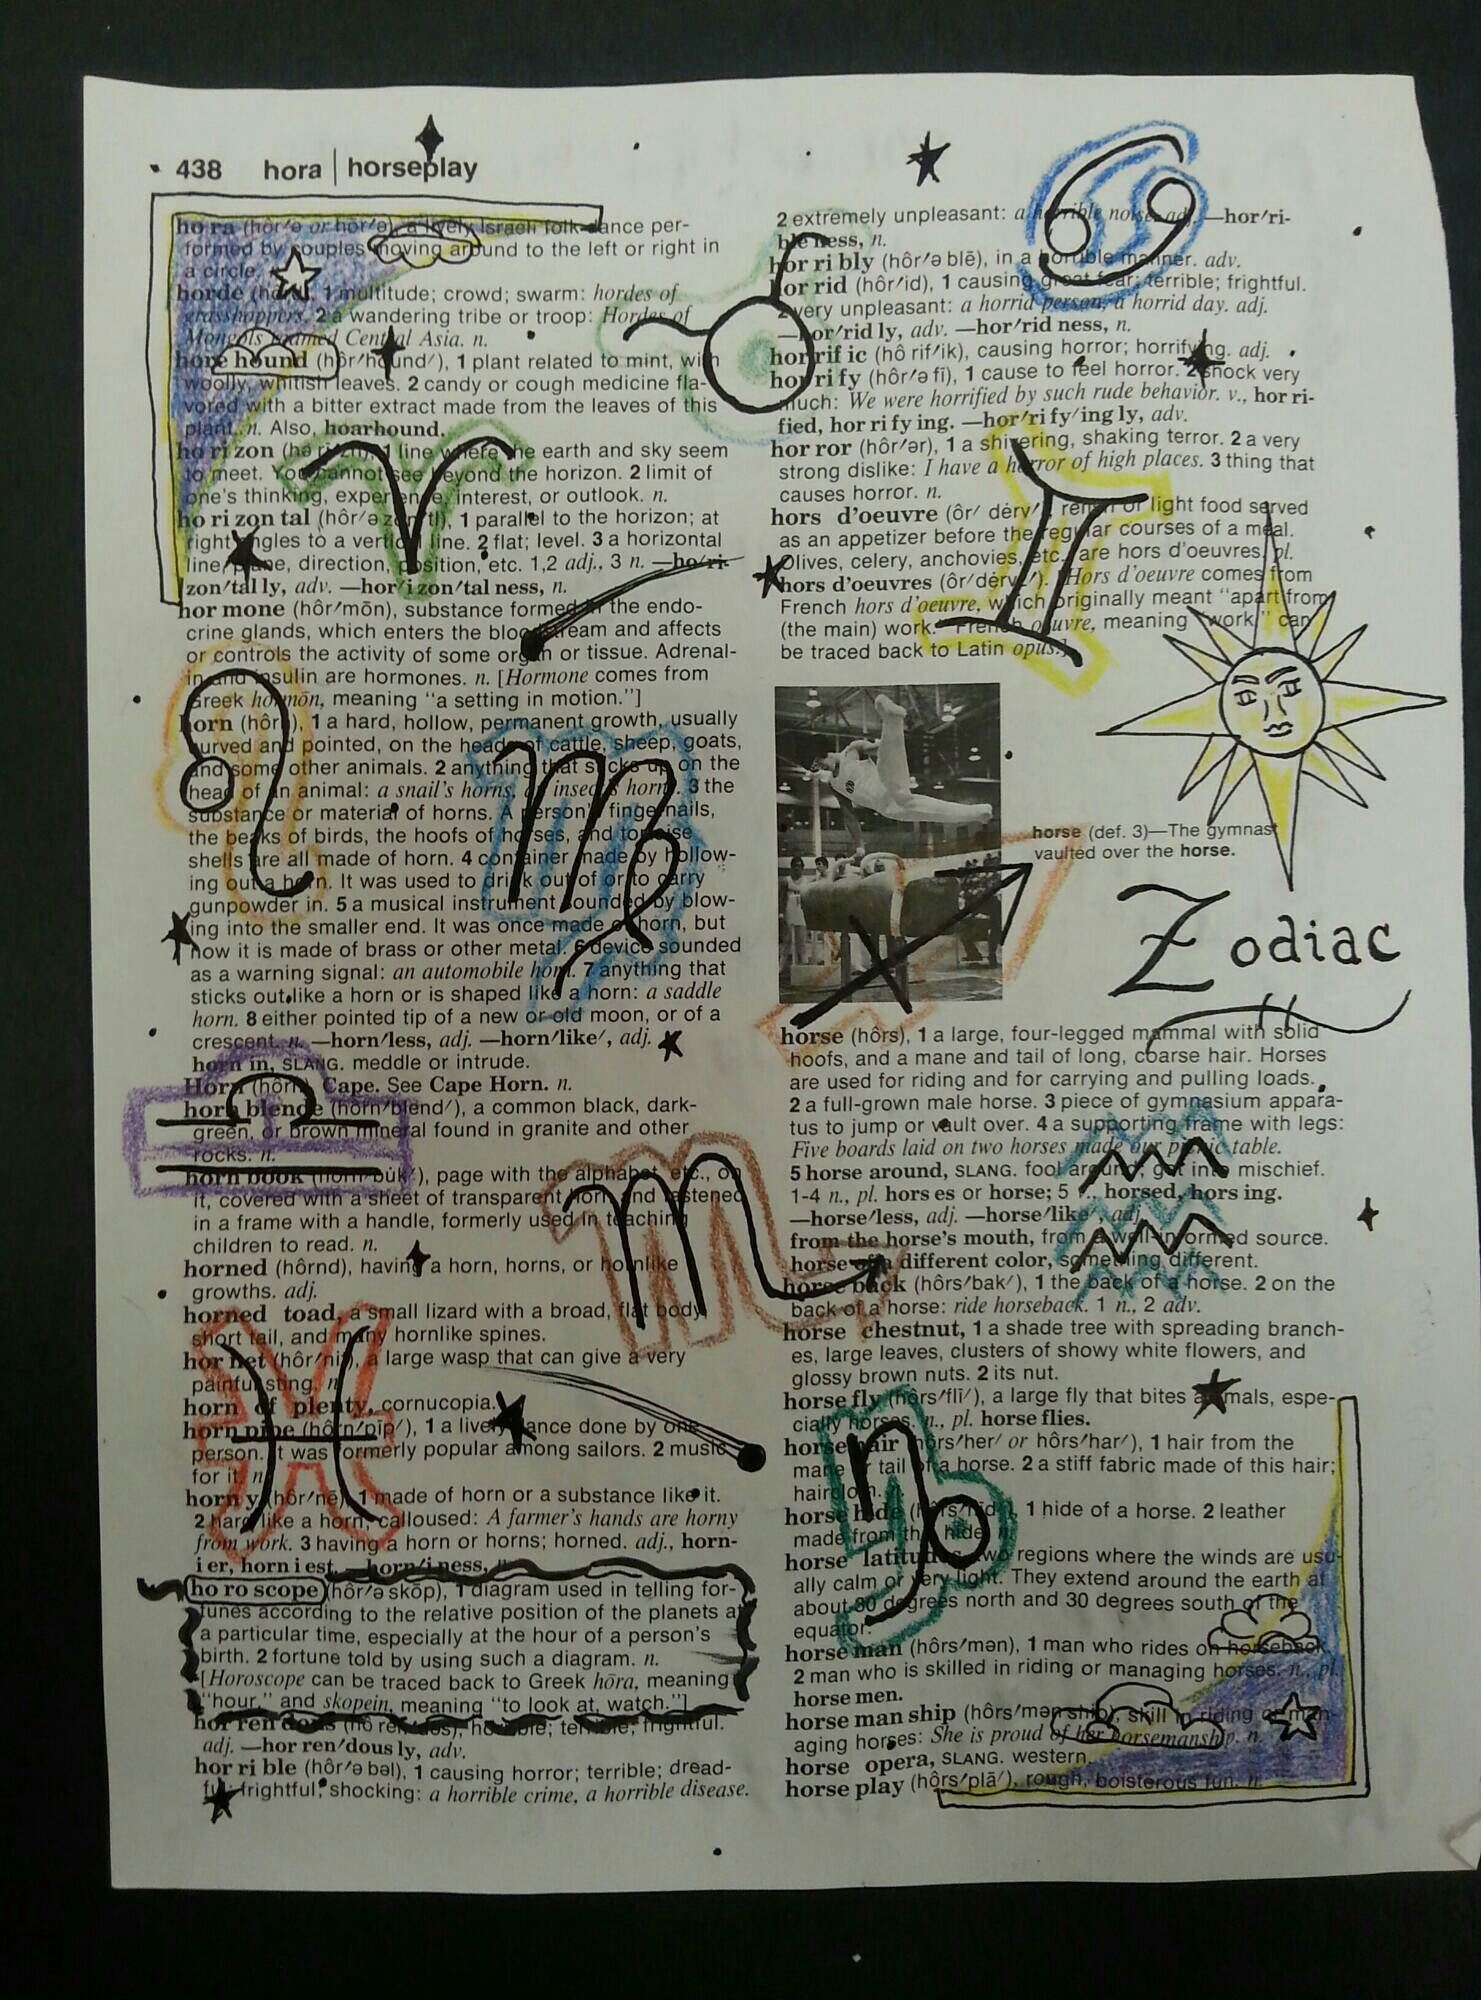 438 hora | horseplay
ho ra (hôr′ə or hōr′ə), a lively Israeli folk dance per-
formed by couples moving around to the left or right in
a circle.
horde 1 multitude; crowd; swarm: hordes of
grasshoppers. 2 a wandering tribe or troop: Hordes of
Mongols roamed Central Asia. n.
hore hound (hôr′hound′), 1 plant related to mint, with
woolly, whitish leaves. 2 candy or cough medicine fla-
vored with a bitter extract made from the leaves of this
plant. n. Also, hoarhound.
ho ri zon (hə rī′zn), 1 line where the earth and sky seem
to meet. You cannot see beyond the horizon. 2 limit of
one's thinking, experience, interest, or outlook. n.
ho ri zon tal (hôr′ə zon′tl), 1 parallel to the horizon; at
right angles to a vertical line. 2 flat; level. 3 a horizontal
line, plane, direction, position, etc. 1,2 adj., 3 n. —ho′ri-
zon′tal ly, adv. —hor′i zon′tal ness, n.
hor mone (hôr′mōn), substance formed in the endo-
crine glands, which enters the bloodstream and affects
or controls the activity of some organ or tissue. Adrenal-
in and insulin are hormones. n. [Hormone comes from
Greek hormōn, meaning "a setting in motion."]
horn (hôrn), 1 a hard, hollow, permanent growth, usually
curved and pointed, on the heads of cattle, sheep, goats,
and some other animals. 2 anything that sticks up on the
head of an animal: a snail's horns, an insect's horns. 3 the
substance or material of horns. A person's fingernails,
the beaks of birds, the hoofs of horses, and tortoise
shells are all made of horn. 4 container made by hollow-
ing out a horn. It was used to drink out of or to carry
gunpowder in. 5 a musical instrument sounded by blow-
ing into the smaller end. It was once made of horn, but
now it is made of brass or other metal. 6 device sounded
as a warning signal: an automobile horn. 7 anything that
sticks out like a horn or is shaped like a horn: a saddle
horn. 8 either pointed tip of a new or old moon, or of a
crescent. n. —horn′less, adj. —horn′like′, adj.
horn in, SLANG. meddle or intrude.
Horn (hôrn), Cape. See Cape Horn. n.
horn blende (hôrn′blend′), a common black, dark-
green, or brown mineral found in granite and other
rocks. n.
horn book (hôrn′bůk′), page with the alphabet, etc., on
it, covered with a sheet of transparent horn and fastened
in a frame with a handle, formerly used in teaching
children to read. n.
horned (hôrnd), having a horn, horns, or hornlike
growths. adj.
horned toad, a small lizard with a broad, flat body,
short tail, and many hornlike spines.
hor net (hôr′nit), a large wasp that can give a very
painful sting. n.
horn of plenty, cornucopia.
horn pipe (hôrn′pīp′), 1 a lively dance done by one
person. It was formerly popular among sailors. 2 music
for it. n.
horn y (hôr′nē), 1 made of horn or a substance like it.
2 hard like a horn; calloused: A farmer's hands are horny
from work. 3 having a horn or horns; horned. adj., horn-
i er, horn i est. —horn′i ness, n.
ho ro scope (hôr′ə skōp), 1 diagram used in telling for-
tunes according to the relative position of the planets at
a particular time, especially at the hour of a person's
birth. 2 fortune told by using such a diagram. n.
[Horoscope can be traced back to Greek hōra, meaning
"hour," and skopein, meaning "to look at, watch."]
hor ren dous (hô ren′dəs), horrible; terrible; frightful.
adj. —hor ren′dous ly, adv.
hor ri ble (hôr′ə bəl), 1 causing horror; terrible; dread-
ful; frightful; shocking: a horrible crime, a horrible disease.
2 extremely unpleasant: a horrible noise. adj. —hor′ri-
ble ness, n.
hor ri bly (hôr′ə blē), in a horrible manner. adv.
hor rid (hôr′id), 1 causing great fear; terrible; frightful.
2 very unpleasant: a horrid person, a horrid day. adj.
—hor′rid ly, adv. —hor′rid ness, n.
hor rif ic (hô rif′ik), causing horror; horrifying. adj.
hor ri fy (hôr′ə fī), 1 cause to feel horror. 2 shock very
much: We were horrified by such rude behavior. v., hor ri-
fied, hor ri fy ing. —hor′ri fy′ing ly, adv.
hor ror (hôr′ər), 1 a shivering, shaking terror. 2 a very
strong dislike: I have a horror of high places. 3 thing that
causes horror. n.
hors d'oeuvre (ôr′ dėrv′), relish or light food served
as an appetizer before the regular courses of a meal.
Olives, celery, anchovies, etc., are hors d'oeuvres. pl.
hors d'oeuvres (ôr′ dėrvz′). [Hors d'oeuvre comes from
French hors d'oeuvre, which originally meant "apart from
(the main) work." French oeuvre, meaning "work," can
be traced back to Latin opus.]
horse (def. 3)—The gymnast
vaulted over the horse.
Zodiac
horse (hôrs), 1 a large, four-legged mammal with solid
hoofs, and a mane and tail of long, coarse hair. Horses
are used for riding and for carrying and pulling loads.
2 a full-grown male horse. 3 piece of gymnasium appara-
tus to jump or vault over. 4 a supporting frame with legs:
Five boards laid on two horses made our picnic table.
5 horse around, SLANG. fool around; get into mischief.
1-4 n., pl. hors es or horse; 5 v., horsed, hors ing.
—horse′less, adj. —horse′like′, adj.
from the horse's mouth, from a well-informed source.
horse of a different color, something different.
horse back (hôrs′bak′), 1 the back of a horse. 2 on the
back of a horse: ride horseback. 1 n., 2 adv.
horse chestnut, 1 a shade tree with spreading branch-
es, large leaves, clusters of showy white flowers, and
glossy brown nuts. 2 its nut.
horse fly (hôrs′flī′), a large fly that bites animals, espe-
cially horses. n., pl. horse flies.
horse hair (hôrs′her′ or hôrs′har′), 1 hair from the
mane or tail of a horse. 2 a stiff fabric made of this hair;
haircloth. n.
horse hide (hôrs′hīd′), 1 hide of a horse. 2 leather
made from this hide. n.
horse latitudes, two regions where the winds are usu-
ally calm or very light. They extend around the earth at
about 30 degrees north and 30 degrees south of the
equator.
horse man (hôrs′mən), 1 man who rides on horseback.
2 man who is skilled in riding or managing horses. n., pl.
horse men.
horse man ship (hôrs′mən ship), skill in riding or man-
aging horses: She is proud of her horsemanship. n.
horse opera, SLANG. western.
horse play (hôrs′plā′), rough, boisterous fun. n.